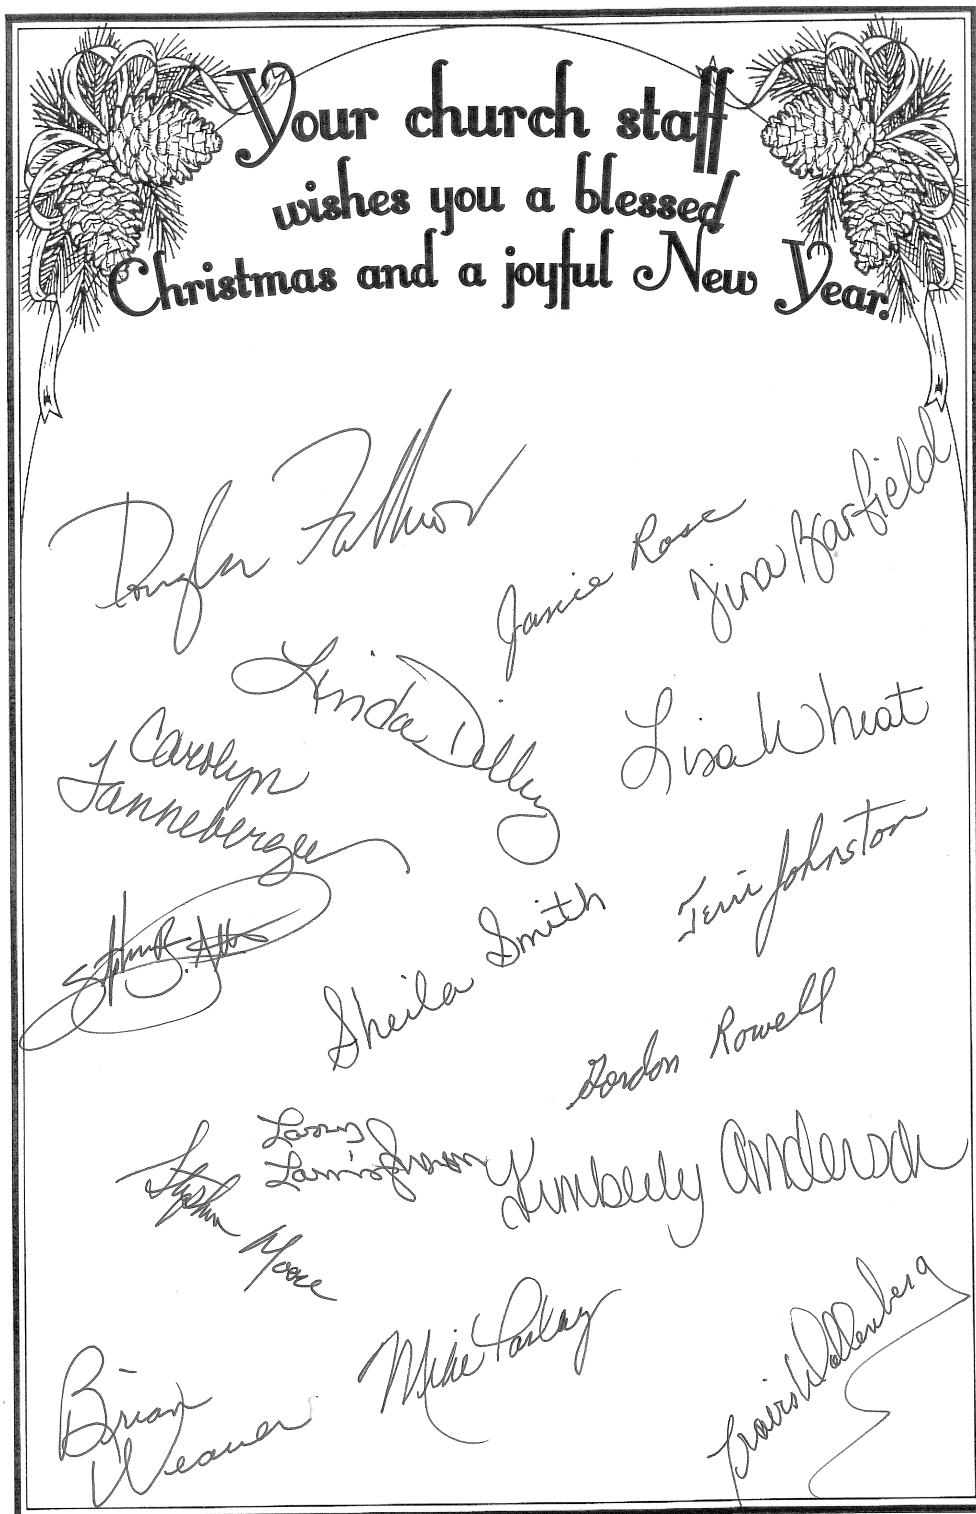 Your church staff
wishes you a blessed
Christmas and a joyful New Year.
Janie Rose
Tina Barfield
Linda Dilley
Lisa Wheat
Carolyn
Tanneberger
Terri Johnston
Sheila Smith
Gordon Rowell
Kimberly Anderson
Stephen Moore
Brian
Weaver
Mike
Travis Wallenberg